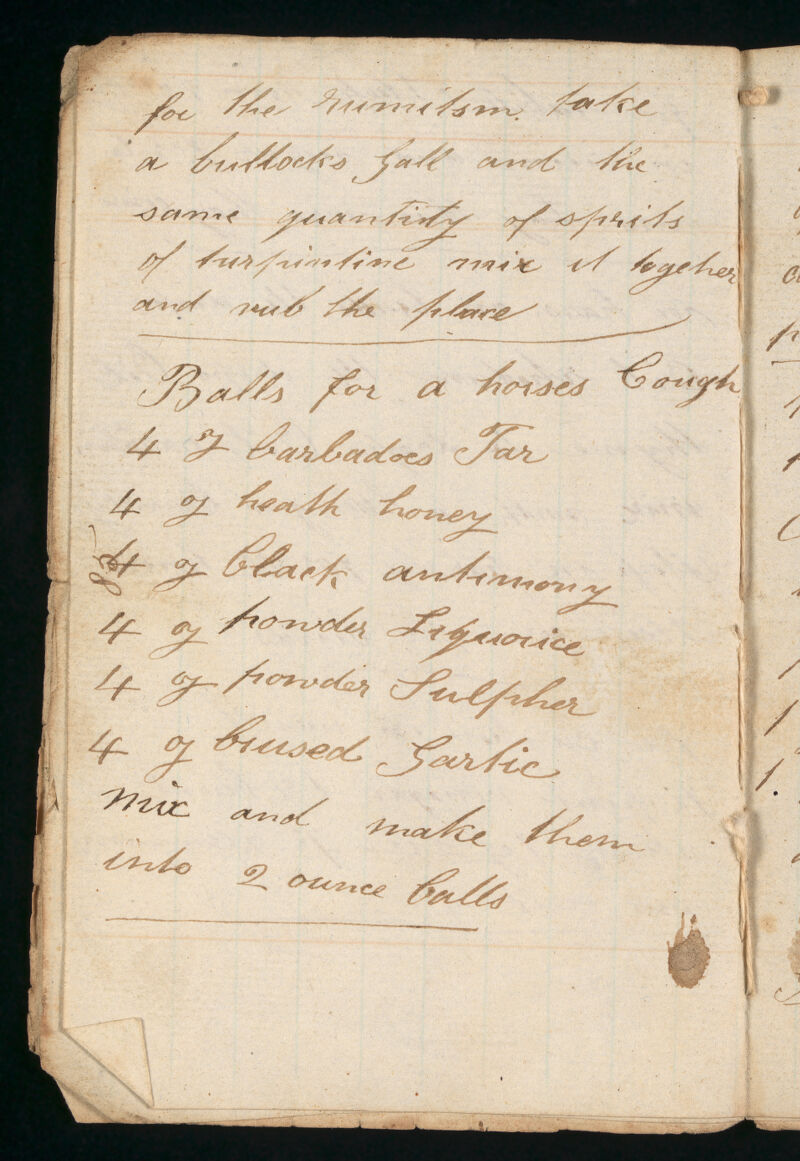 for the rumitsm. take
a bullocks Gall and the
same quantity of sprits
of turpintine mix it together
and rub the place
Balls for a horses Cough
4 oz barbadoes Tar
4 oz heath honey
4 oz black antimony
4 oz powder Liquorice
4 oz powder Sulpher
4 oz brused Garlic
mix and make them
into 2 ounce balls